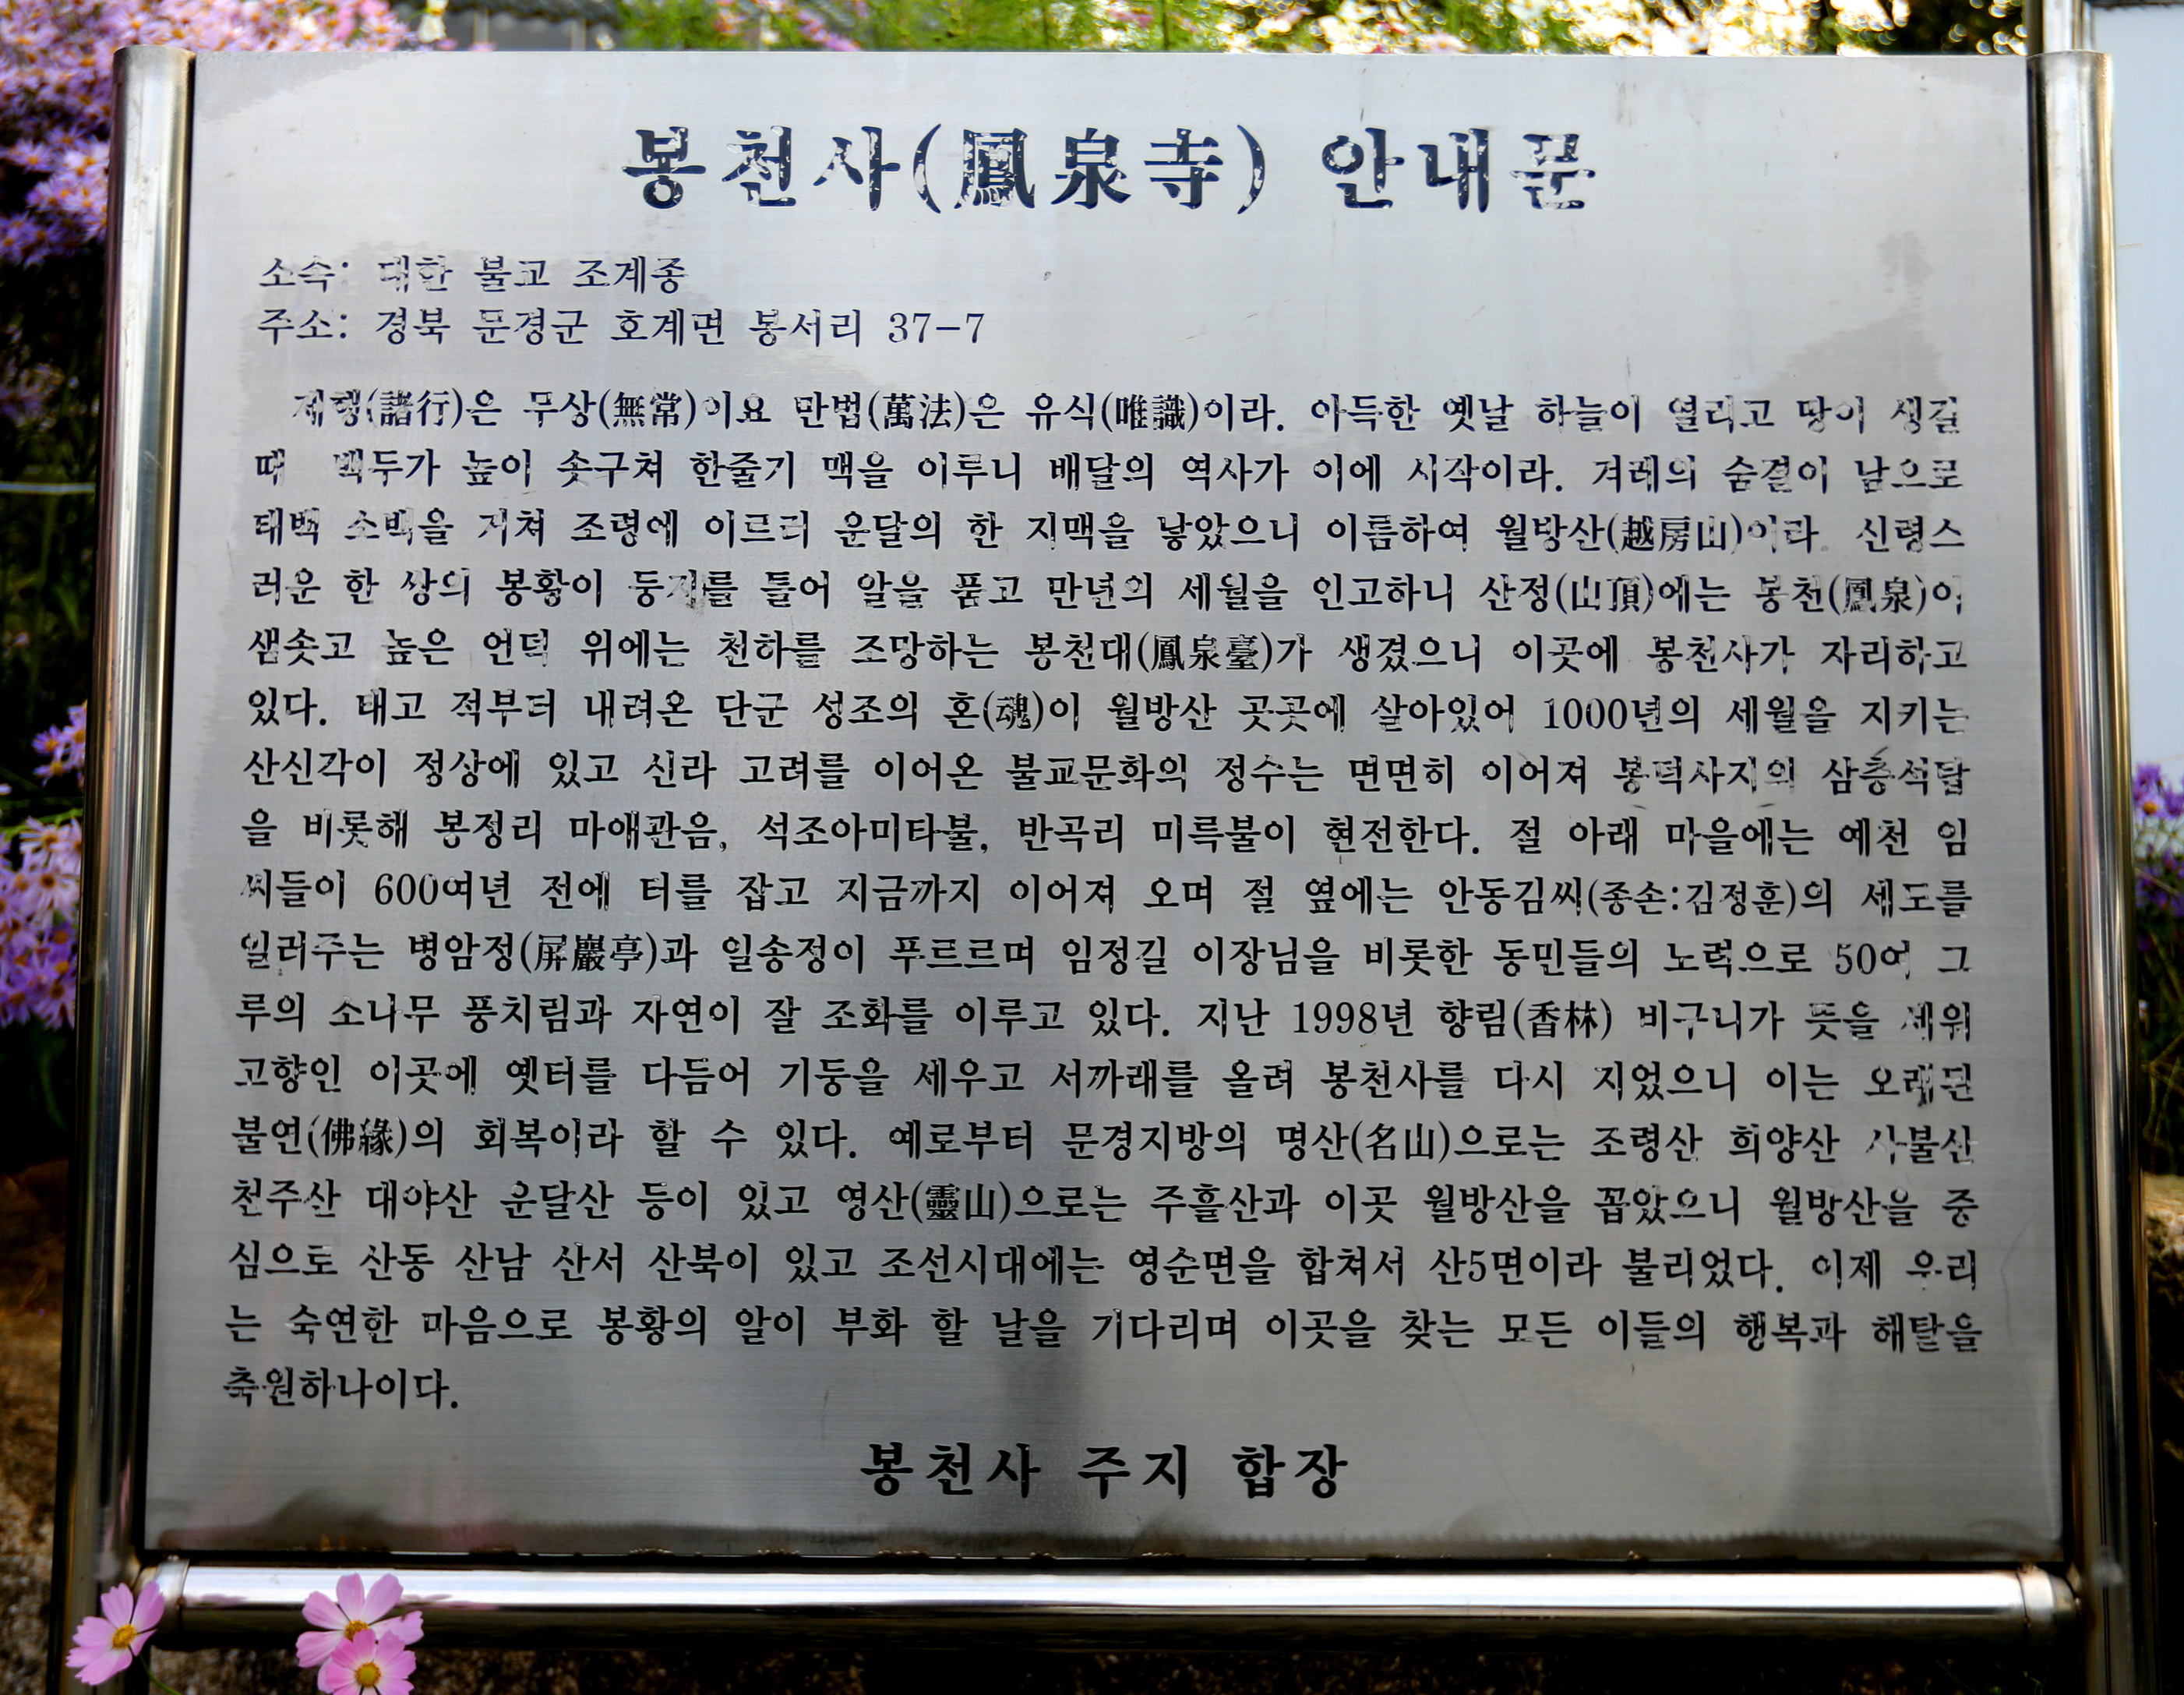 봉천사(鳳泉寺) 안내문
소속: 대한 불교 조계종
주소: 경북 문경군 호계면 봉서리 37-7
제행(諸行)은 무상(無常)이요 만법(萬法)은 유식(唯識)이라. 아득한 옛날 하늘이 열리고 땅이 생길
때 백두가 높이 솟구쳐 한줄기 맥을 이루니 배달의 역사가 이에 시작이라. 겨레의 숨결이 남으로
태백 소백을 거쳐 조령에 이르러 운달의 한 지맥을 낳았으니 이름하여 월방산(越房山)이라. 신령스
러운 한 쌍의 봉황이 둥지를 틀어 알을 품고 만년의 세월을 인고하니 산정(山頂)에는 봉천(鳳泉)이
샘솟고 높은 언덕 위에는 천하를 조망하는 봉천대(鳳泉臺)가 생겼으니 이곳에 봉천사가 자리하고
있다. 태고 적부터 내려온 단군 성조의 혼(魂)이 월방산 곳곳에 살아있어 1000년의 세월을 지키는
산신각이 정상에 있고 신라 고려를 이어온 불교문화의 정수는 면면히 이어져 봉덕사지의 삼층석탑
을 비롯해 봉정리 마애관음, 석조아미타불, 반곡리 미륵불이 현전한다. 절 아래 마을에는 예천 임
씨들이 600여년 전에 터를 잡고 지금까지 이어져 오며 절 옆에는 안동김씨(종손:김정훈)의 세도를
일러주는 병암정(屛巖亭)과 일송정이 푸르르며 임정길 이장님을 비롯한 동민들의 노력으로 50여 그
루의 소나무 풍치림과 자연이 잘 조화를 이루고 있다. 지난 1998년 향림(香林) 비구니가 뜻을 세워
고향인 이곳에 옛터를 다듬어 기둥을 세우고 서까래를 올려 봉천사를 다시 지었으니 이는 오래된
불연(佛緣)의 회복이라 할 수 있다. 예로부터 문경지방의 명산(名山)으로는 조령산 희양산 사불산
천주산 대야산 운달산 등이 있고 영산(靈山)으로는 주흘산과 이곳 월방산을 꼽았으니 월방산을 중
심으로 산동 산남 산서 산북이 있고 조선시대에는 영순면을 합쳐서 산5면이라 불리었다. 이제 우리
는 숙연한 마음으로 봉황의 알이 부화 할 날을 기다리며 이곳을 찾는 모든 이들의 행복과 해탈을
축원하나이다.
봉천사 주지 합장